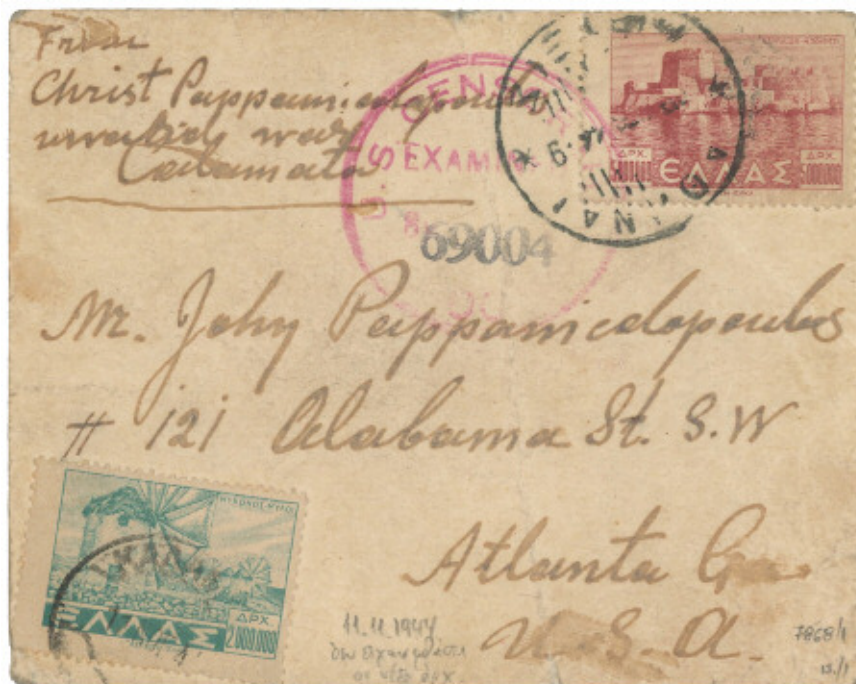 From
Christ Pappanicolopoulos
Calamata
U.S CENSOR
EXAMINED
69004
ΔΡΧ. ΕΛΛΑΣ ΔΡΧ.
5000.000
Mr. John Pappanicolopoulos
# 121 Alabama St. S.W
Atlanta Ga
U.S.A.
ΜΥΚΟΝΟΣ-ΜΥΛΟΙ
ΕΛΛΑΣ ΔΡΧ.
2.000.000
11.11.1944
7868/1